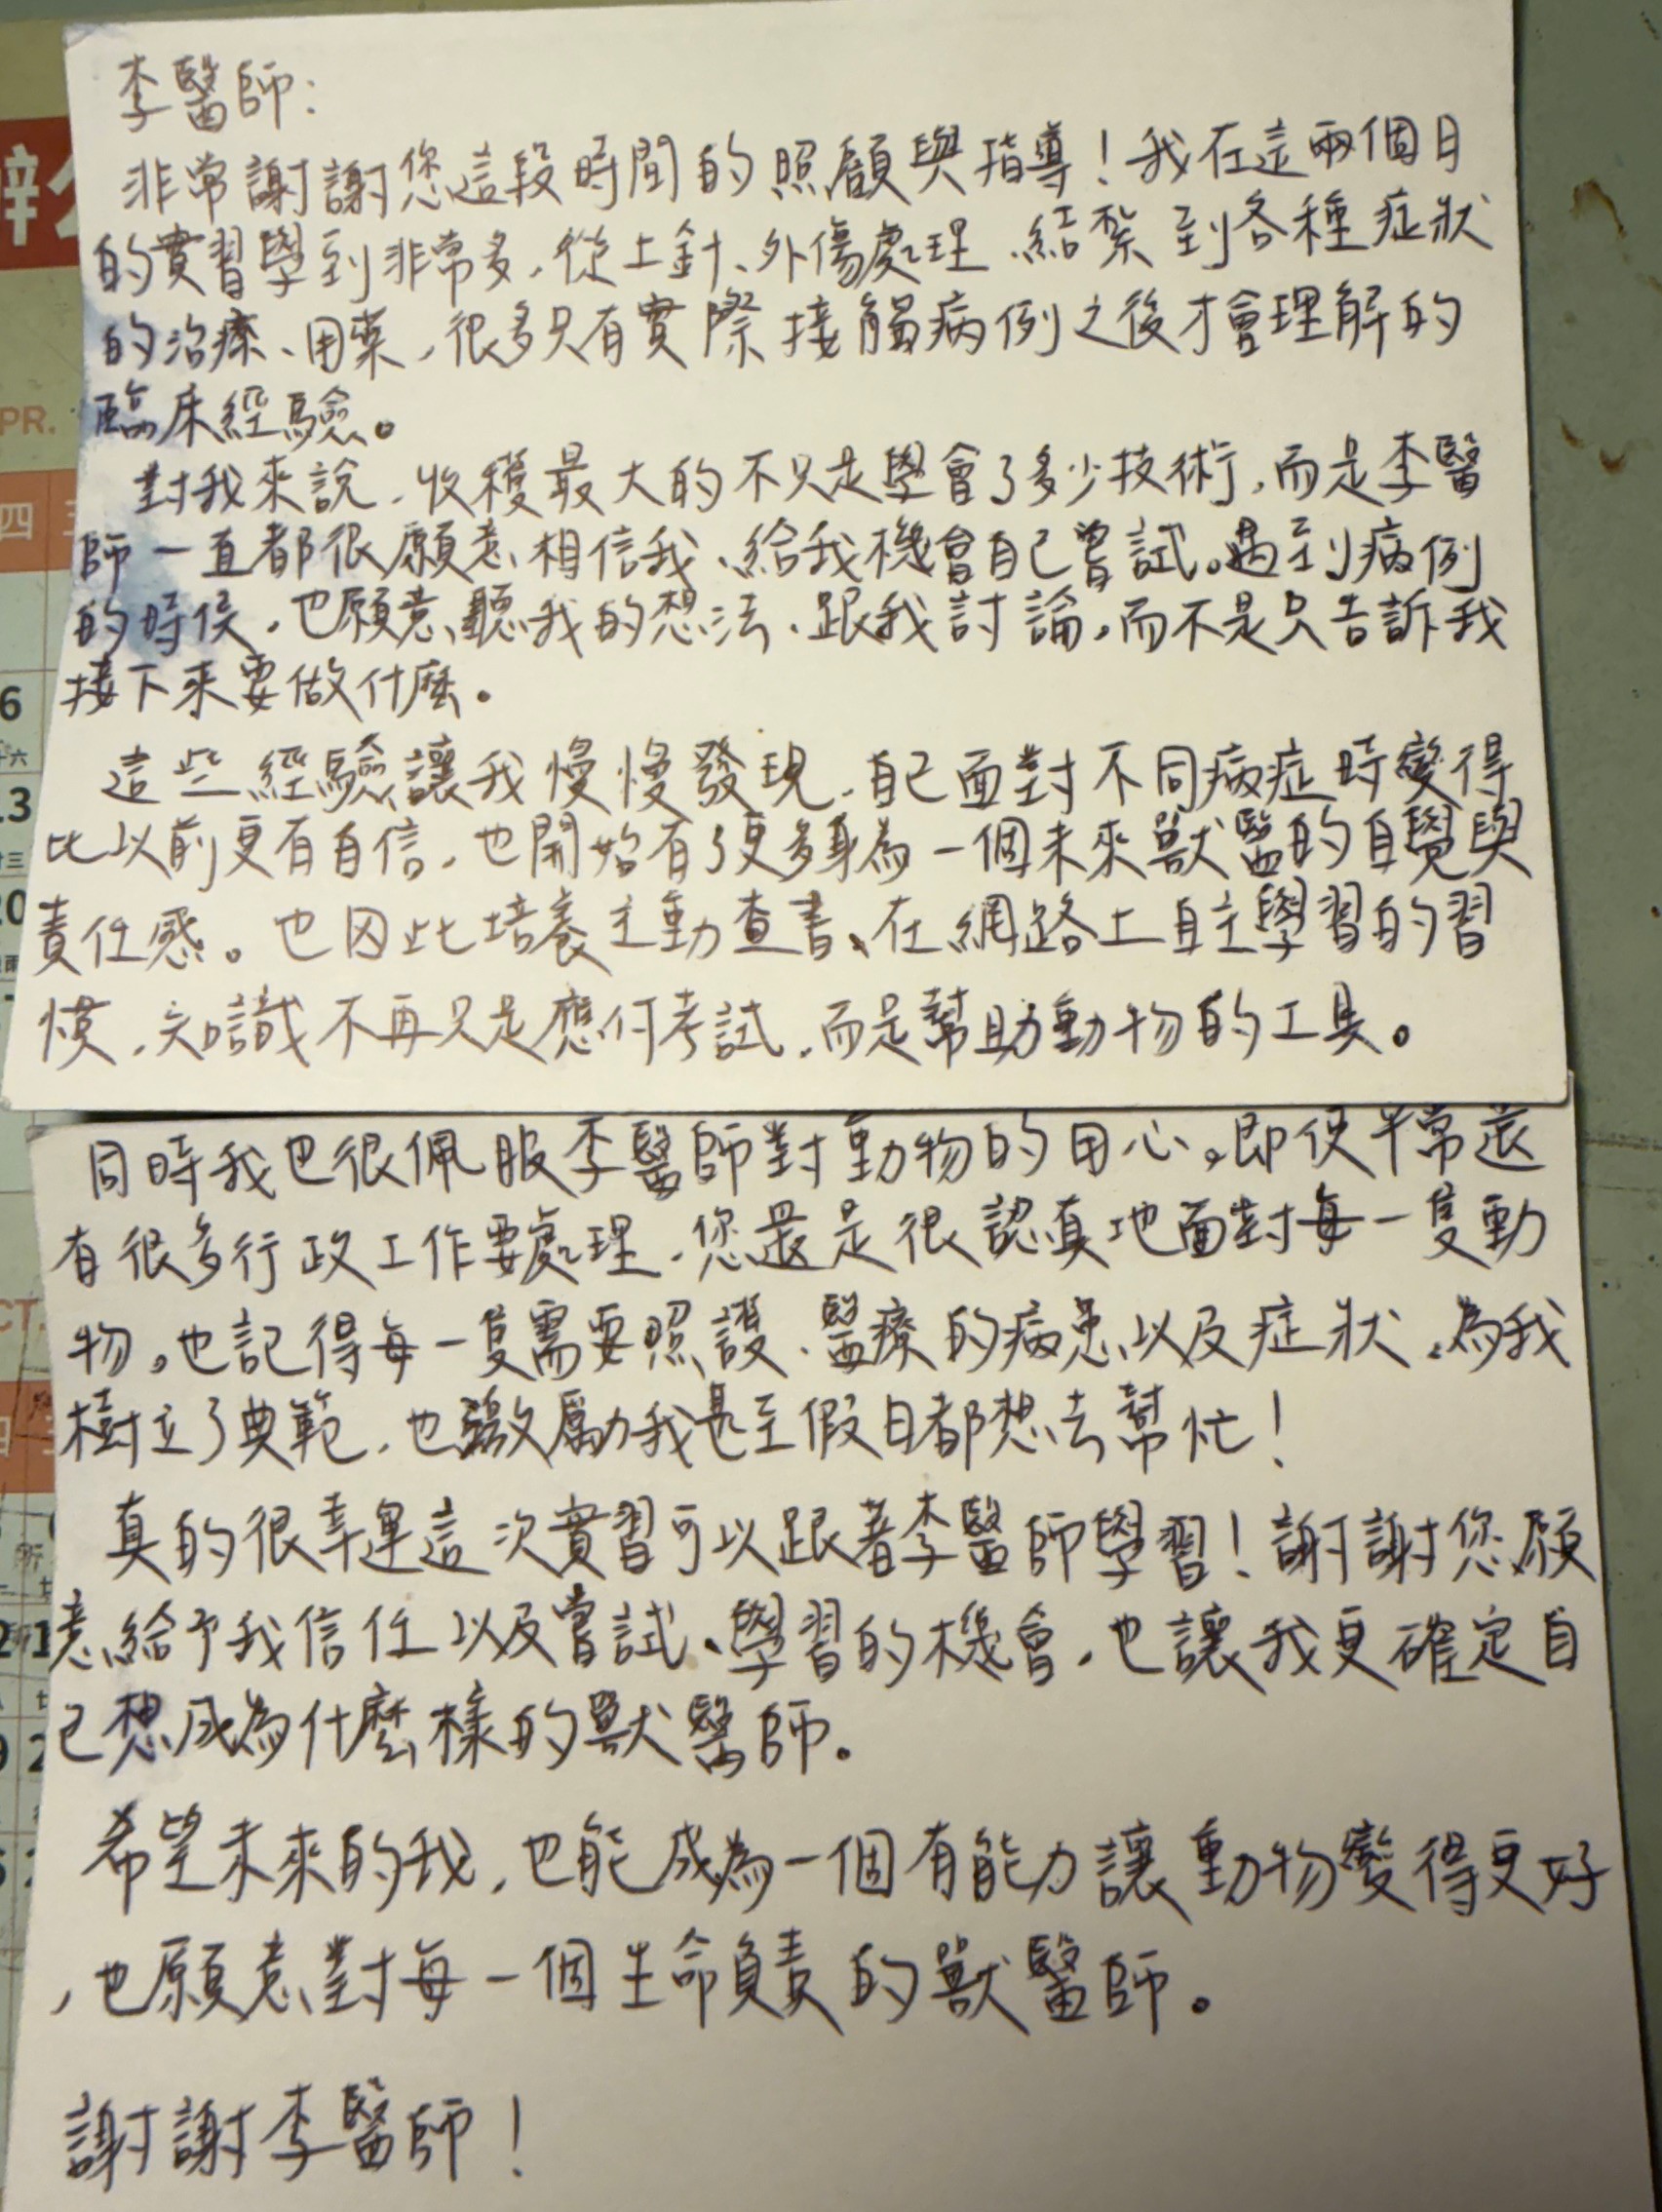 李醫師:
非常謝謝您這段時間的照顧與指導!我在這兩個月
的實習學到非常多,從上針、外傷處理、結紮到各種症狀
的治療、用藥,很多只有實際接觸病例之後才會理解的
臨床經驗。
對我來說,收穫最大的不只是學會了多少技術,而是李醫
師一直都很願意相信我、給我機會自己嘗試。遇到病例
的時候,也願意聽我的想法、跟我討論,而不是只告訴我
接下來要做什麼。
這些經驗讓我慢慢發現,自己面對不同病症時變得
比以前更有自信,也開始有了更多身為一個未來獸醫的自覺與
責任感。也因此培養主動查書、在網路上自主學習的習
慣,知識不再只是應付考試,而是幫助動物的工具。
同時我也很佩服李醫師對動物的用心。即使平常還
有很多行政工作要處理,您還是很認真地面對每一隻動
物。也記得每一隻需要照護、醫療的病患以及症狀,為我
樹立了典範,也激勵我甚至假日都想去幫忙!
真的很幸運這次實習可以跟著李醫師學習!謝謝您願
意給予我信任以及嘗試、學習的機會,也讓我更確定自
己想成為什麼樣的獸醫師。
希望未來的我,也能成為一個有能力讓動物變得更好
,也願意對每一個生命負責的獸醫師。
謝謝李醫師!
PR.
四
6
十六
13
20
CT.
21
9 2